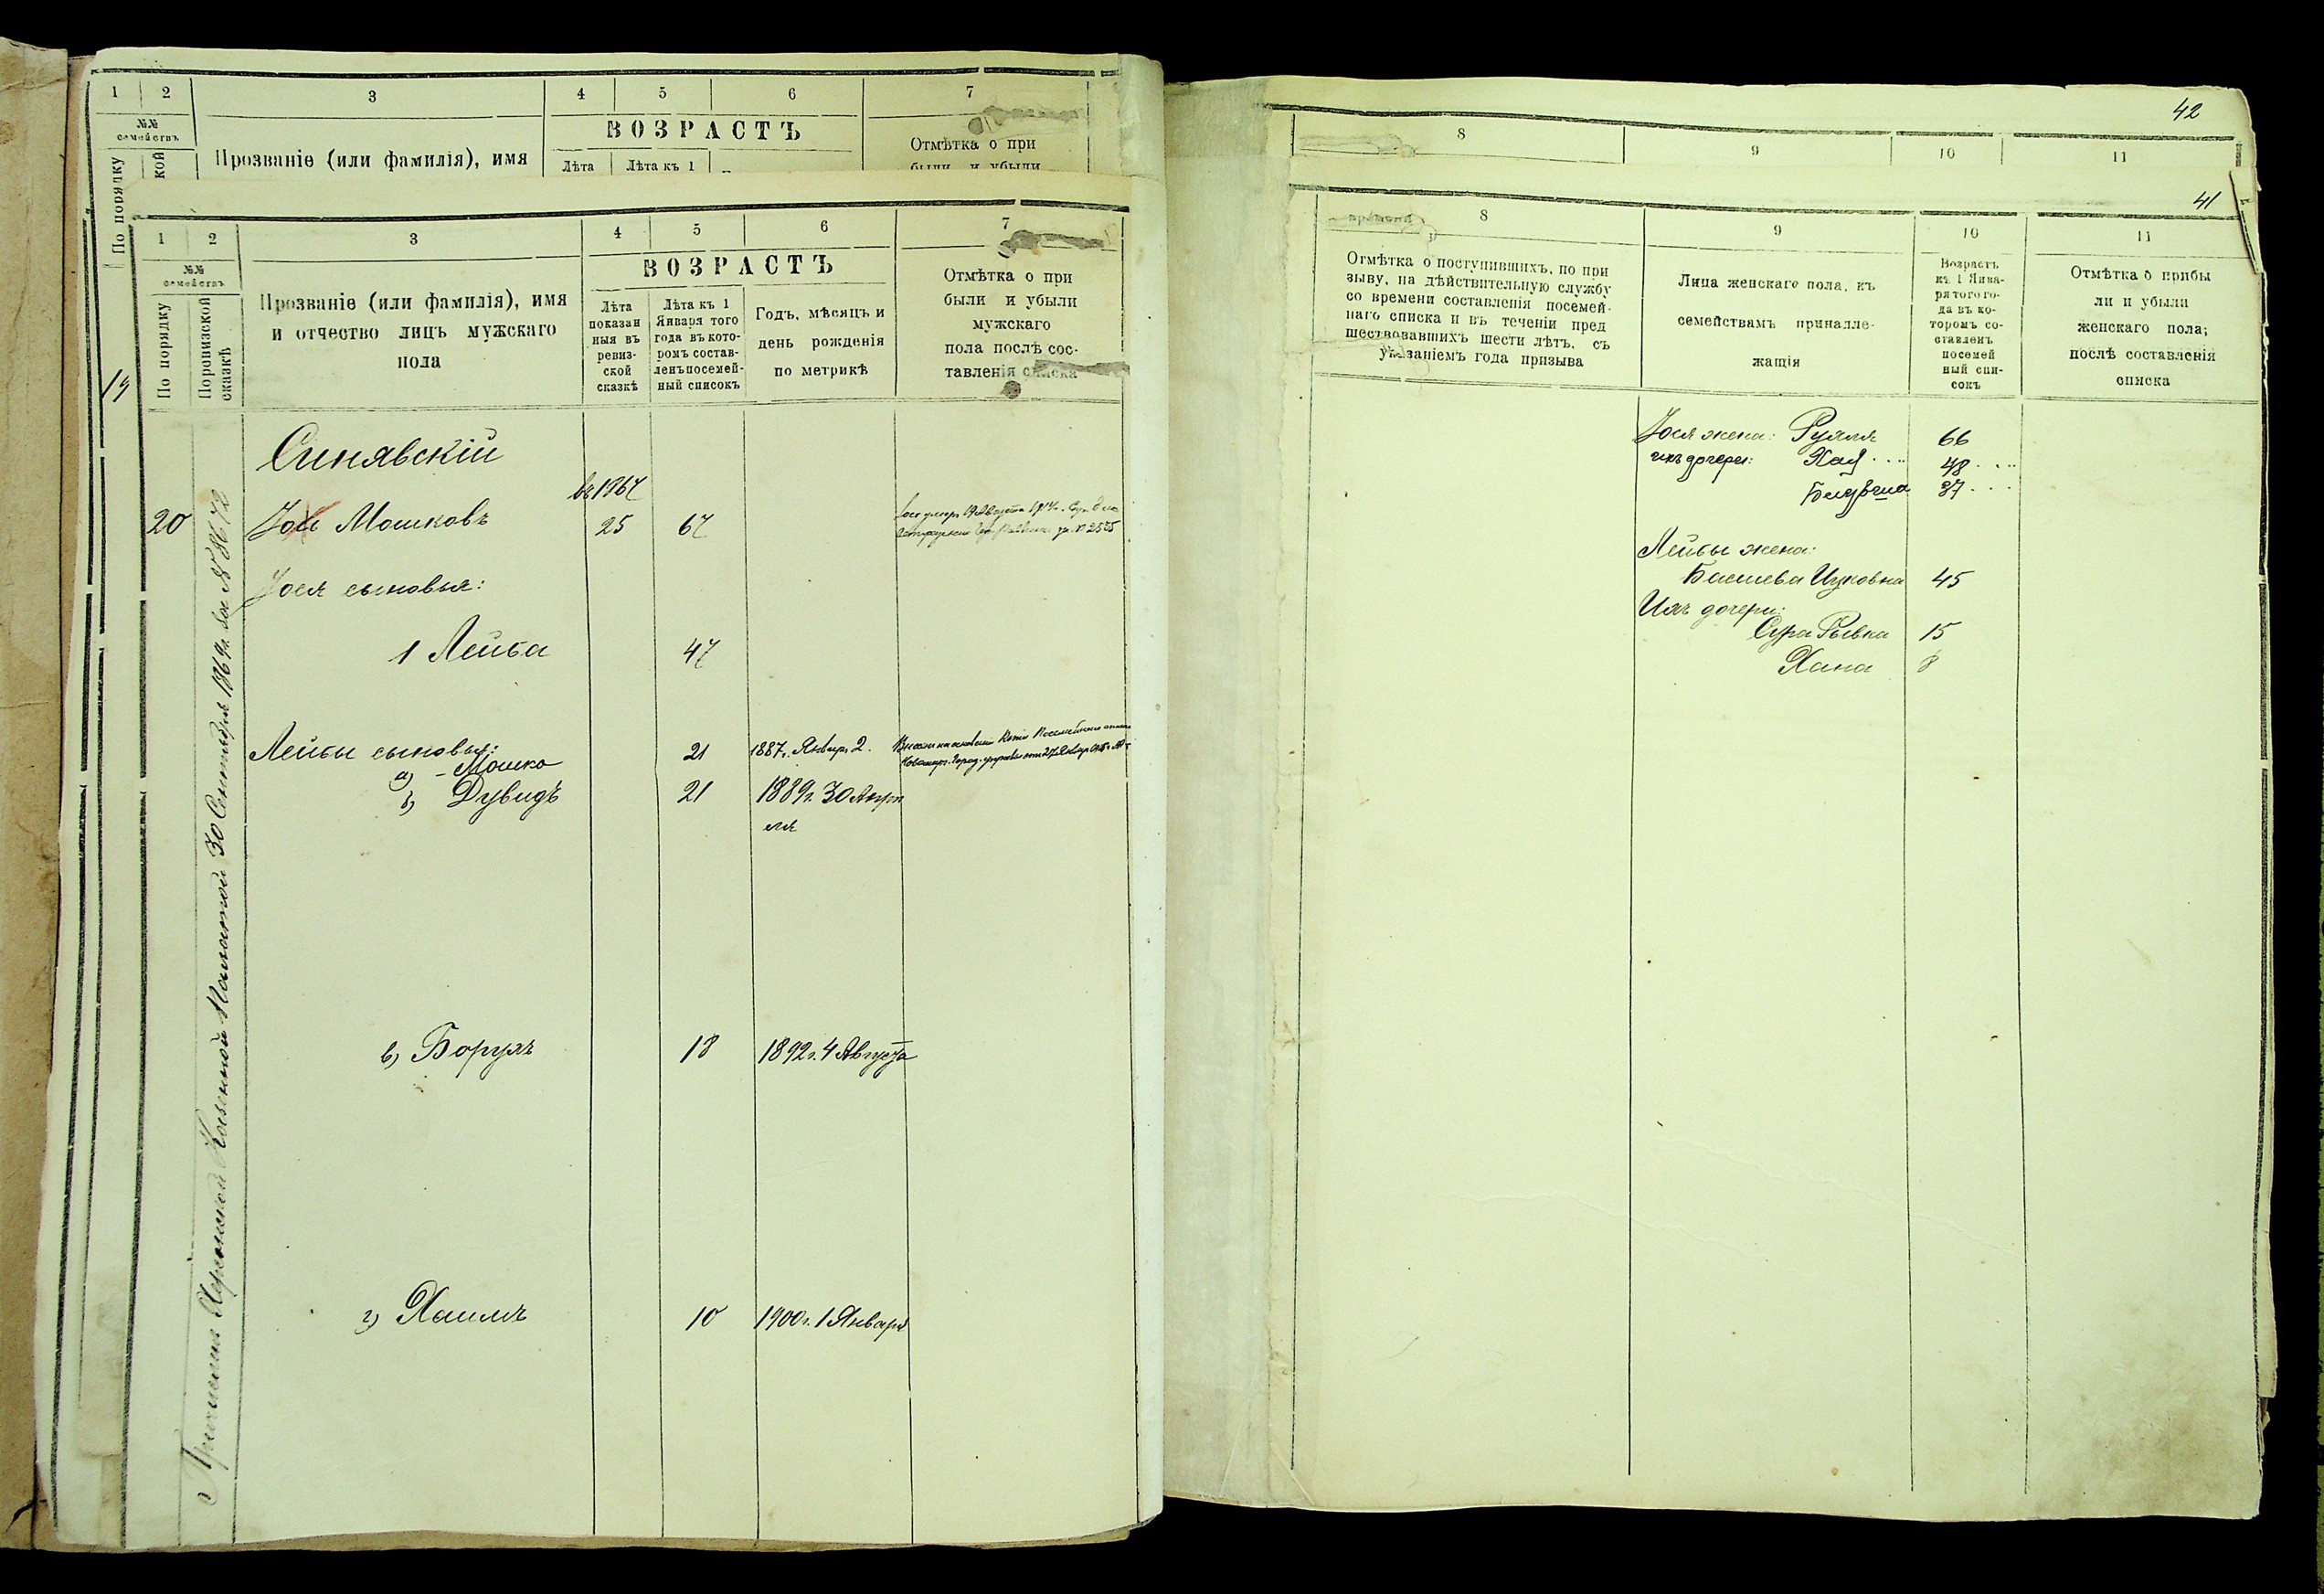 1 2 3 4 5 6 7
№№ семействъ
По порядку
кой
Прозваніе (или фамилія), имя
ВОЗРАСТЪ
Лѣта Лѣта къ 1
Отмѣтка о при
были и убыли
19
1 2 3 4 5 6 7
№№ семействъ
По порядку
По ревизской сказкѣ
Прозваніе (или фамилія), имя
и отчество лицъ мужскаго
пола
ВОЗРАСТЪ
Лѣта
показан
ныя въ
ревиз-
ской
сказкѣ
Лѣта къ 1
Января того
года въ кото-
ромъ состав-
ленъ посемей-
ный списокъ
Годъ, мѣсяцъ и
день рожденія
по метрикѣ
Отмѣтка о при
были и убыли
мужскаго
пола послѣ сос-
тавленія списка
Причислен Херсонской Казенной Палатой 30 Сентября 1869 г. за №
Синявскій
въ 1867
20 Мошковъ 25 67
Іося сыновья:
1 Лейба 47
Лейбы сыновья:
а) - Мошко 21 1887 г. Январ. 2.
б) Дувидъ 21 1889 г. 30 Апрѣ
ля
в) Борухъ 18 1892 г. 4 Августа
г) Хаимъ 10 1900 г. 1 Января
42
8 9 10 11
41
8 9 10 11
Отмѣтка о поступившихъ, по при
зыву, на дѣйствительную службу
со времени составленія посемей-
наго списка и въ теченіи пред
шествовавшихъ шести лѣтъ, съ
указаніемъ года призыва
Лица женскаго пола, къ
семействамъ принадле-
жащія
Возрастъ
къ 1 Янва-
ря того го-
да въ ко-
торомъ со-
ставленъ
посемей
ный спи-
сокъ
Отмѣтка о прибы
ли и убыли
женскаго пола;
послѣ составленія
списка
Іося жена: Рухля 66
ихъ дочери: Хая 48
37
Лейбы жена:
Басшева Ицковна 45
Ихъ дочери:
Сура Рывка 15
Хана 8